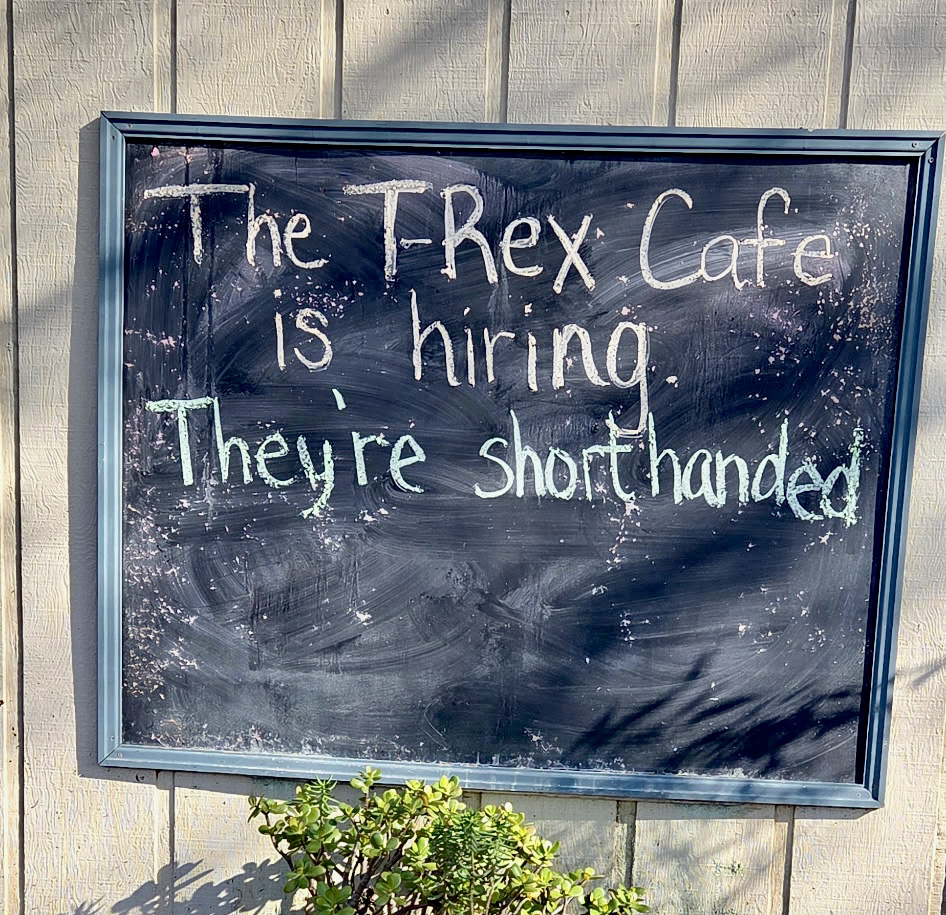 The T-Rex Cafe
is hiring.
They're shorthanded